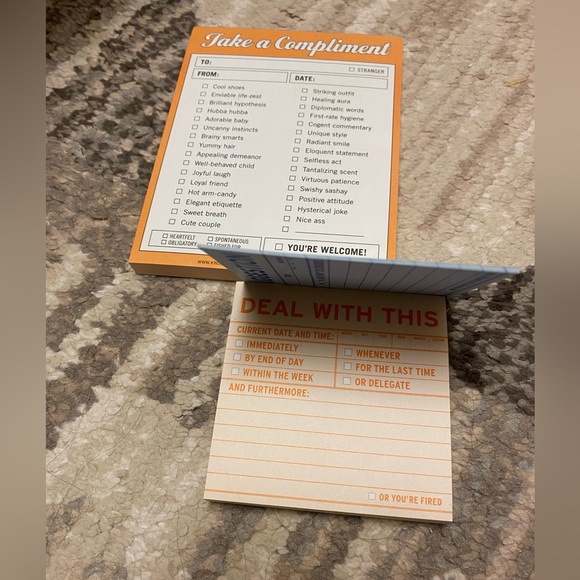 Take a Compliment
TO:
STRANGER
FROM:
DATE:
Cool shoes
Enviable life-zest
Brilliant hypothesis
Hubba hubba
Adorable baby
Uncanny instincts
Brainy smarts
Yummy hair
Appealing demeanor
Well-behaved child
Joyful laugh
Loyal friend
Hot arm-candy
Elegant etiquette
Sweet breath
Cute couple
Striking outfit
Healing aura
Diplomatic words
First-rate hygiene
Cogent commentary
Unique style
Radiant smile
Eloquent statement
Selfless act
Tantalizing scent
Virtuous patience
Swishy sashay
Positive attitude
Hysterical joke
Nice ass
HEARTFELT
SPONTANEOUS
OBLIGATORY
FISHED FOR
YOU'RE WELCOME!
DEAL WITH THIS
CURRENT DATE AND TIME:
IMMEDIATELY
BY END OF DAY
WITHIN THE WEEK
WHENEVER
FOR THE LAST TIME
OR DELEGATE
AND FURTHERMORE:
OR YOU'RE FIRED